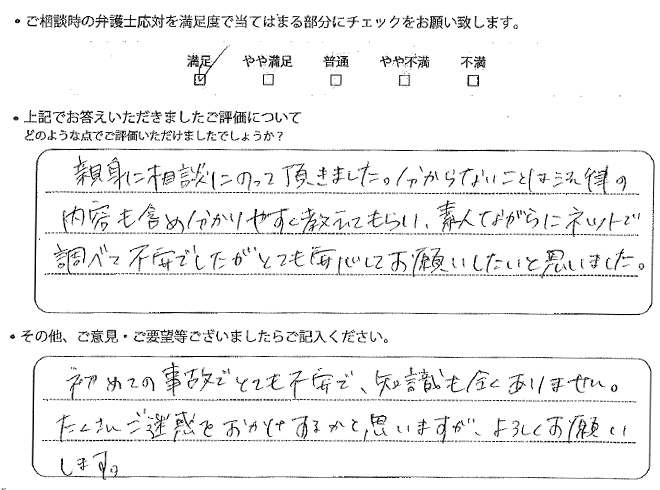 • ご相談時の弁護士応対を満足度で当てはまる部分にチェックをお願い致します。
満足 やや満足 普通 やや不満 不満
• 上記でお答えいただきましたご評価について
どのような点でご評価いただけましたでしょうか？
親身に相談にのって頂きました。分からないことは法律の
内容も含め分かりやすく教えてもらい、素人ながらにネットで
調べて不安でしたがとても安心してお願いしたいと思いました。
• その他、ご意見・ご要望等ございましたらご記入ください。
初めての事故でとても不安で、知識も全くありません。
たくさんご迷惑をおかけするかと思いますが、よろしくお願い
します。